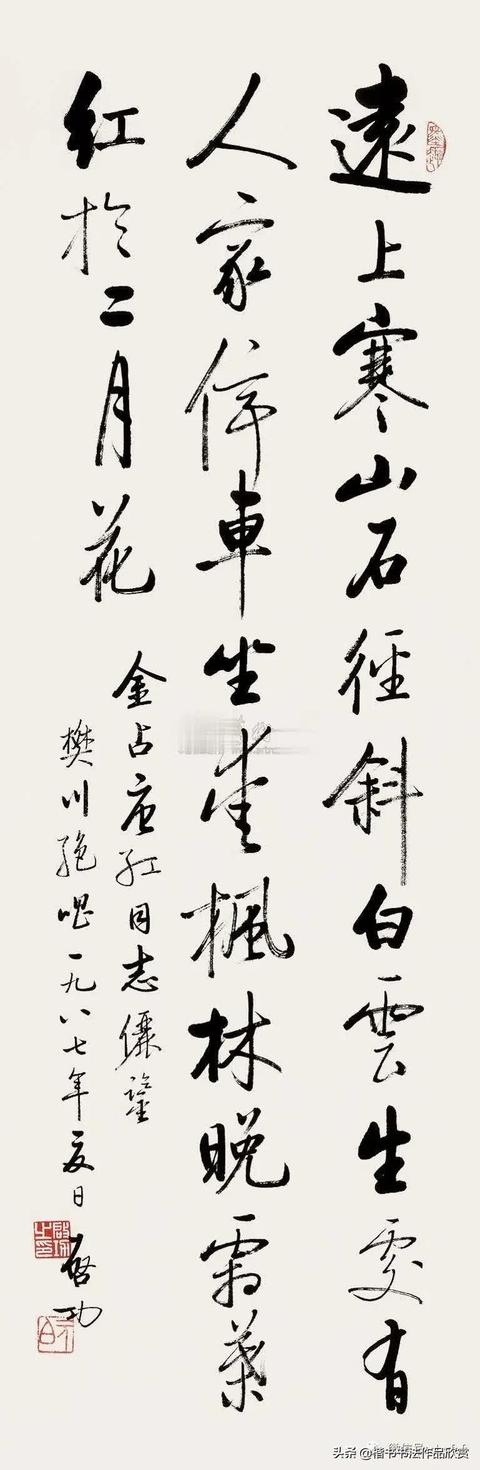 遠上寒山石徑斜白雲生處有
人家停車坐愛楓林晚霜葉
紅於二月花
金占唐紅同志儷鑒
樊川絕唱一九八七年夏日
啓功
啟功之印
元白
头条@楷书书法作品欣赏